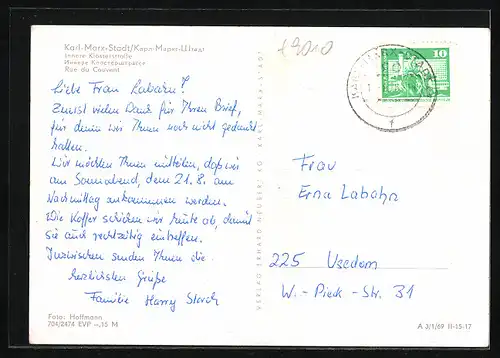 Karl-Marx-Stadt/Карл-Маркс-Штадт
Innere Klosterstraße
Иннере Клостерштрассе
Rue du Couvent
19010
10
Liebe Frau Labahn!
Zuerst vielen Dank für Ihren Brief,
für den wir Ihnen noch nicht gedankt
hatten.
Wir möchten Ihnen mitteilen, daß wir
am Sonnabend, dem 21.8. am
Nachmittag ankommen werden.
Die Koffer schicken wir heute ab, damit
sie auch rechtzeitig eintreffen.
Inzwischen senden Ihnen die
herzlichsten Grüße
Familie Harry Storch
VERLAG ERHARD NEUBERT KG KARL-MARX-STADT
Frau
Erna Labahn
225 Usedom
W.-Pieck-Str. 31
Foto: Hoffmann
704/2474 EVP -,15 M
A 3/1/69 II-15-17